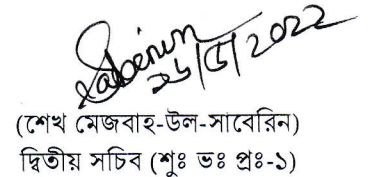 Sabenin
২৬/৫/2022
(শেখ মেজবাহ-উল-সাবেরিন)
দ্বিতীয় সচিব (শুঃ ভঃ প্রঃ-১)